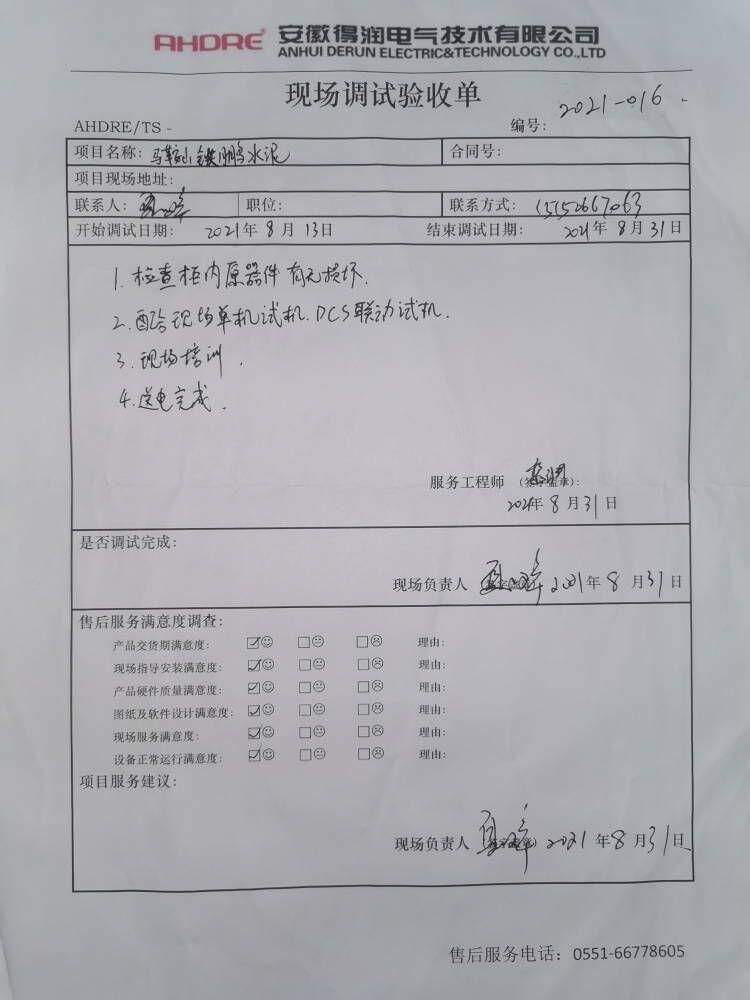 AHDRE 安徽得润电气技术有限公司
ANHUI DERUN ELECTRIC&TECHNOLOGY CO.,LTD
现场调试验收单
AHDRE/TS - 编号: 2021-016
项目名称: 马鞍山铁鹏水泥 合同号:
项目现场地址:
联系人: 职位: 联系方式: 15152667063
开始调试日期: 2021年 8 月 13日 结束调试日期: 2021年 8 月 31 日
1. 检查柜内原器件有无损坏.
2. 配合现场单机试机. DCS联动试机.
3. 现场培训.
4. 送电完成.
服务工程师 (签字盖章):
2021年 8 月 31 日
是否调试完成:
现场负责人 2021年 8 月 31 日
售后服务满意度调查:
产品交货期满意度: ☑☺ □😐 □☹ 理由:
现场指导安装满意度: ☑☺ □😐 □☹ 理由:
产品硬件质量满意度: ☑☺ □😐 □☹ 理由:
图纸及软件设计满意度: ☑☺ □😐 □☹ 理由:
现场服务满意度: ☑☺ □😐 □☹ 理由:
设备正常运行满意度: ☑☺ □😐 □☹ 理由:
项目服务建议:
现场负责人 2021 年 8 月 31 日
售后服务电话: 0551-66778605